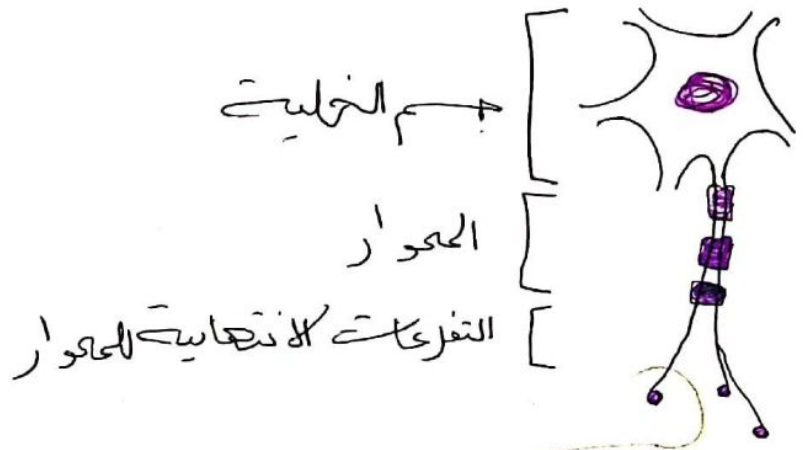 جسم الخلية
المحوار
التفرعات الانتهائية للمحوار